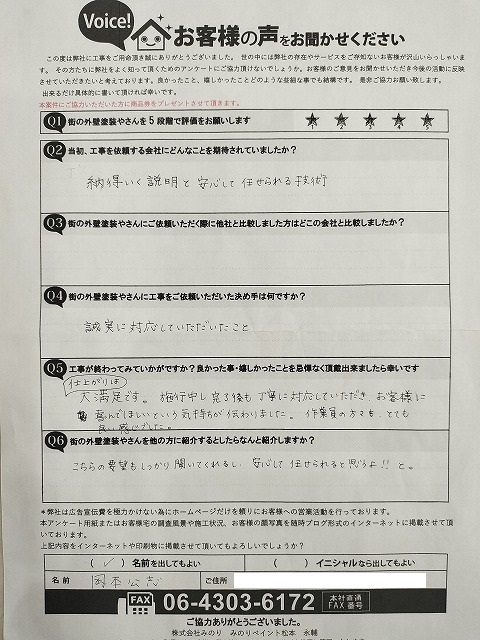 Voice!
お客様の声をお聞かせください
この度は弊社に工事をご用命頂き誠にありがとうございました。 世の中には弊社の存在やサービスをご存知ないお客様が沢山いらっしゃいま
す。 その方たちに弊社をよく知って頂くためのアンケートにご協力頂けないでしょうか。お客様のご意見をお聞かせいただき今後の活動に反映
させていただきたいと考えております。良かったこと、嬉しかったことどのような些細な事でも結構です。 是非ご協力お願い致します。
出来るだけ具体的に書いて頂ければ幸いです。
本案件にご協力いただいた方に商品券をプレゼントさせて頂きます。
Q1 街の外壁塗装やさんを5段階で評価をお願いします ★ ★ ★ ★ ★
Q2 当初、工事を依頼する会社にどんなことを期待されていましたか?
納得いく説明と安心して任せられる技術
Q3 街の外壁塗装やさんにご依頼いただく際に他社と比較しました方はどこの会社と比較しましたか?
Q4 街の外壁塗装やさんに工事をご依頼いただいた決め手は何ですか?
誠実に対応していただいたこと
Q5 工事が終わってみていかがですか?良かった事・嬉しかったことを忌憚なく頂戴出来ましたら幸いです
仕上がりは
大満足です。 施行中も完了後も丁寧に対応していただき、お客様に
喜んでほしいという気持ちが伝わりました。 作業員の方々も、とても
良い感じでした。
Q6 街の外壁塗装やさんを他の方に紹介するとしたらなんと紹介しますか?
こちらの要望もしっかり聞いてくれるし、安心して任せられると思うよ!!と。
*弊社は広告宣伝費を極力かけない為にホームページだけを頼りにお客様への営業活動を行っております。
本アンケート用紙またはお客様宅の調査風景や施工状況、お客様の顔写真を随時ブログ形式のインターネットに掲載させて頂
いております。
上記内容をインターネットや印刷物に掲載させて頂いてもよろしいでしょうか?
( ✓ ) 名前を出してもよい ( ) イニシャルなら出してもよい
名 前 ご住所
FAX 06-4303-6172 本社直通 FAX 番号
ご協力ありがとうございました。
株式会社みのり みのりペイント松本 永輔